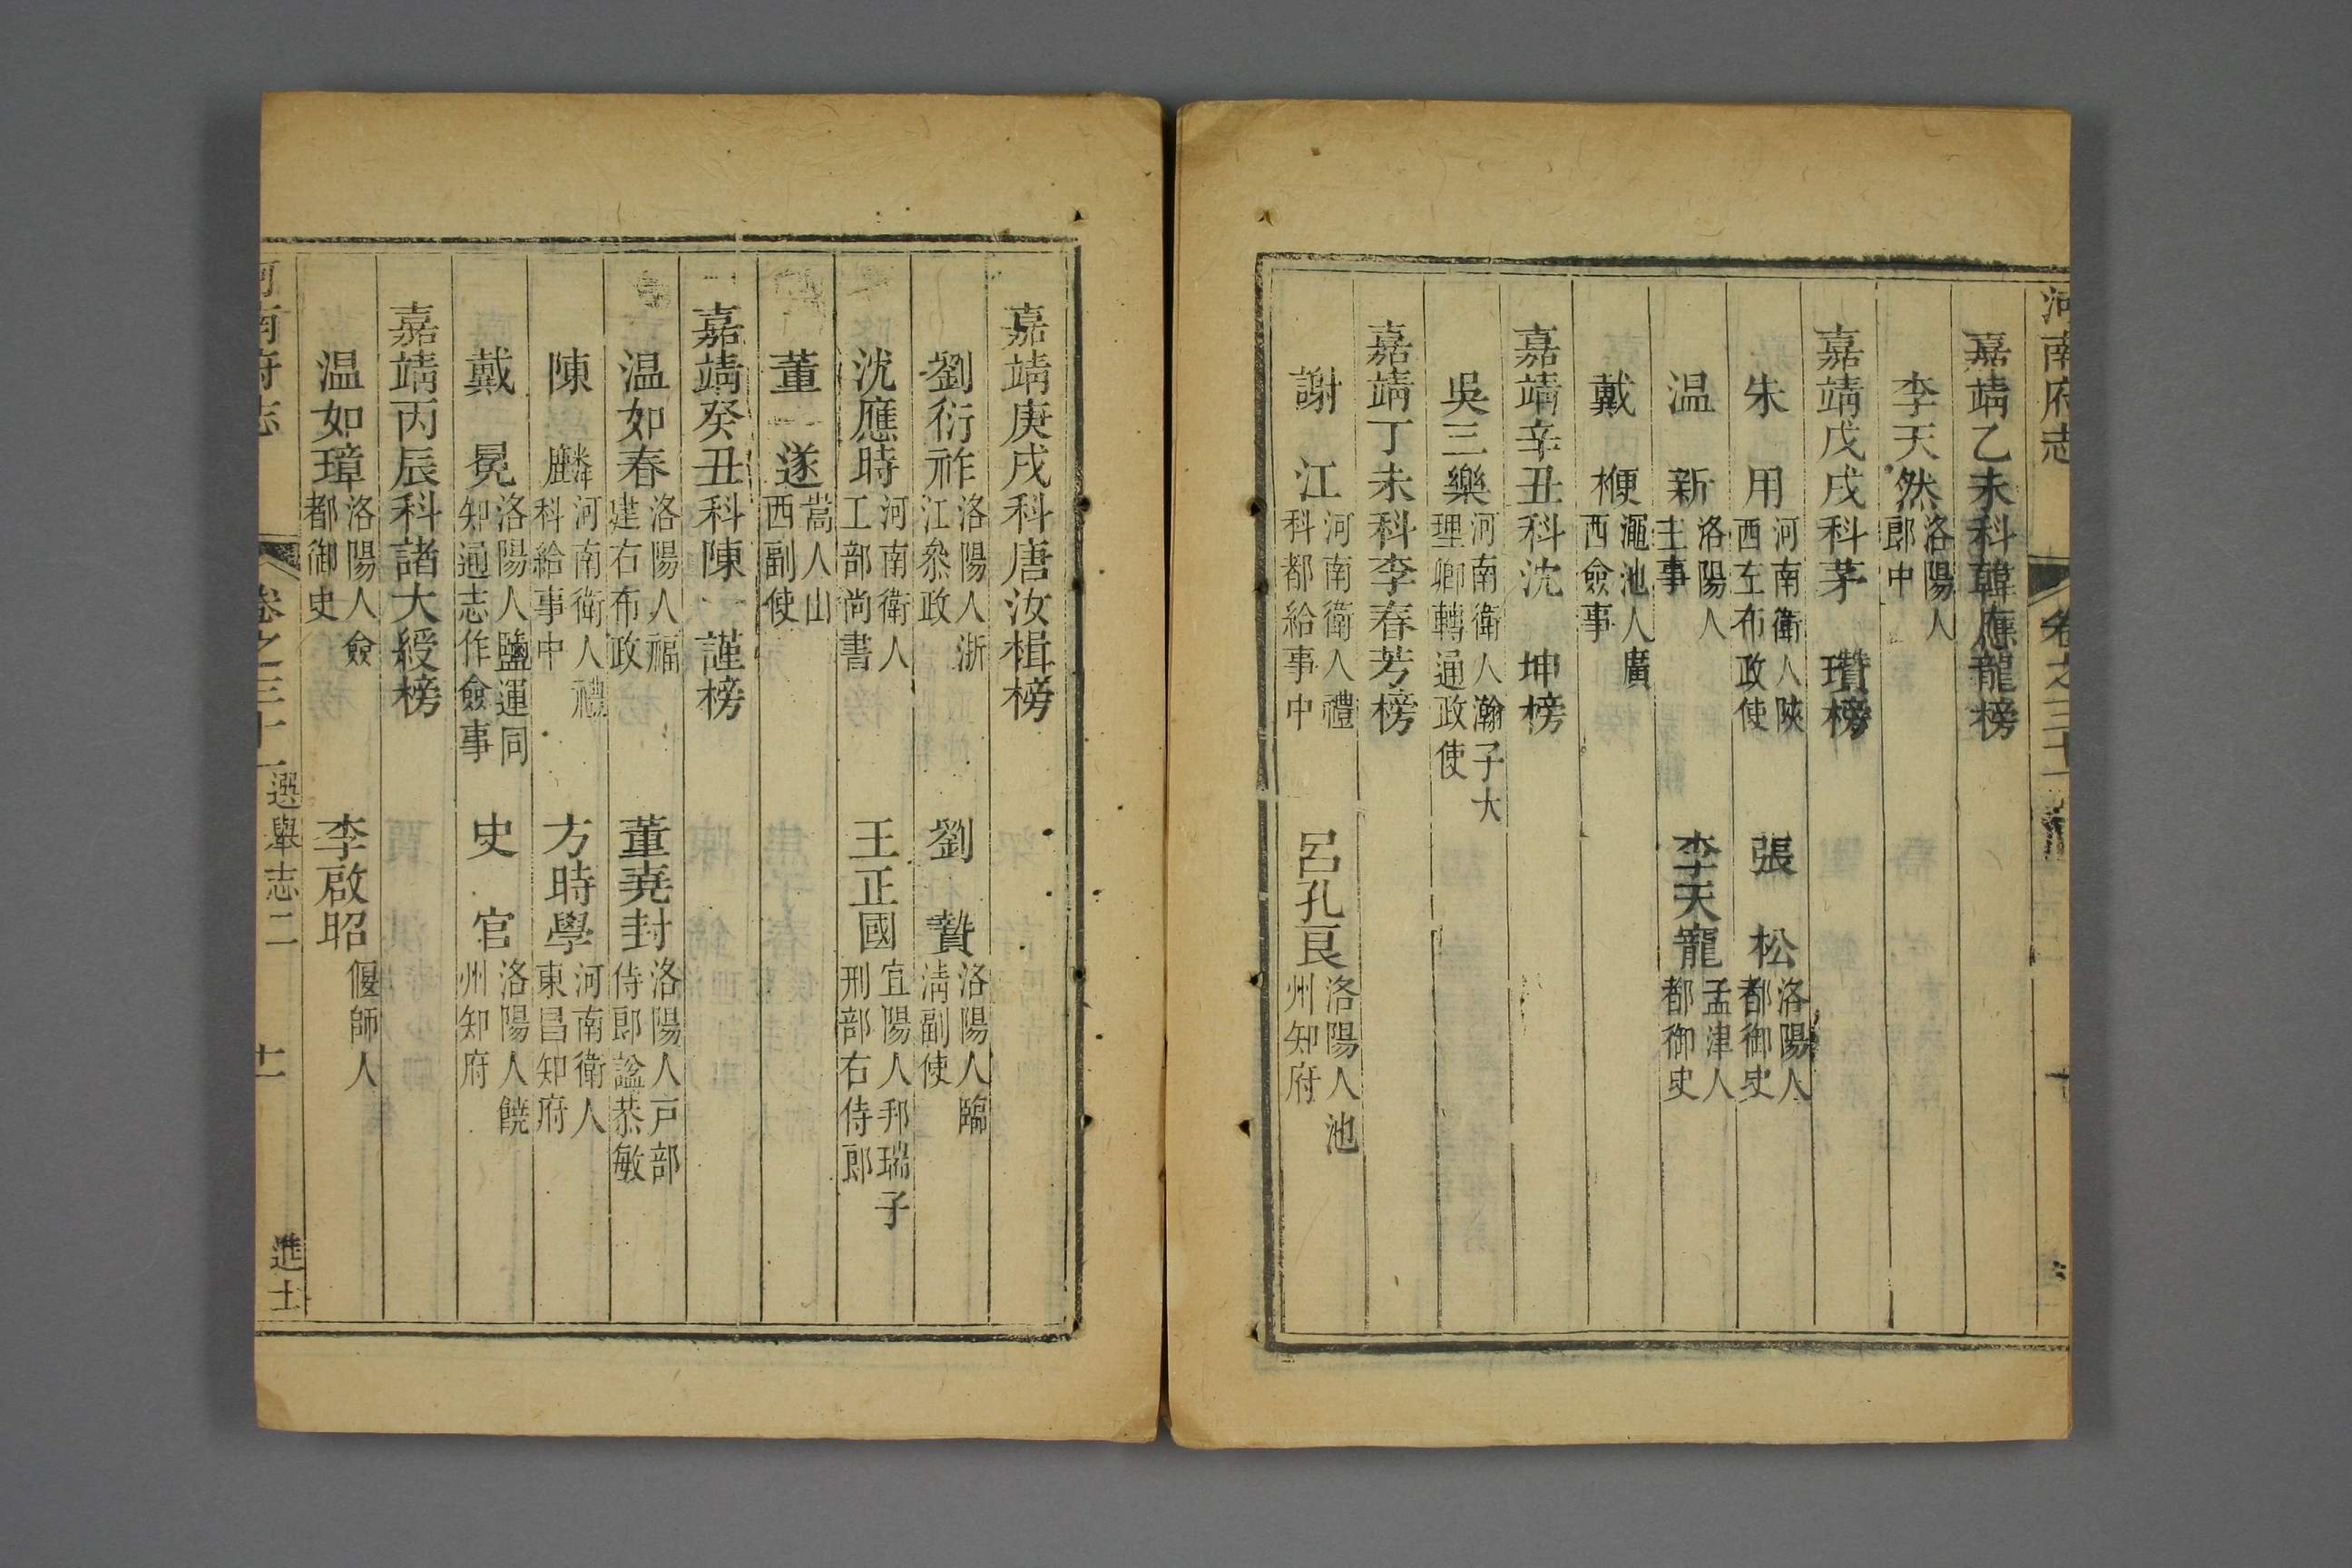 河南府志 卷之三十一 十
嘉靖乙未科韓應龍榜
李天然 洛陽人郎中
嘉靖戊戌科茅瓚榜
朱用 河南衛人陝西左布政使 張松 洛陽人都御史
温新 洛陽人主事 李天寵 孟津人都御史
戴楩 澠池人廣西僉事
嘉靖辛丑科沈坤榜
吳三樂 河南衛人瀚子大理卿轉通政使
嘉靖丁未科李春芳榜
謝江 河南衛人禮科都給事中 呂孔良 洛陽人池州知府
嘉靖庚戌科唐汝楫榜
劉衍祚 洛陽人浙江叅政 劉贄 洛陽人臨清副使
沈應時 河南衛人工部尚書 王正國 宜陽人邦瑞子刑部右侍郎
董遂 嵩人山西副使
嘉靖癸丑科陳謹榜
温如春 洛陽人福建右布政 董堯封 洛陽人戸部侍郎謚恭敏
陳麟 河南衛人禮科給事中 方時學 河南衛人東昌知府
戴冕 洛陽人鹽運同知通志作僉事 史官 洛陽人饒州知府
嘉靖丙辰科諸大綬榜
温如璋 洛陽人僉都御史 李啟昭 偃師人
河南府志 卷之三十一 選舉志二 十一 進士